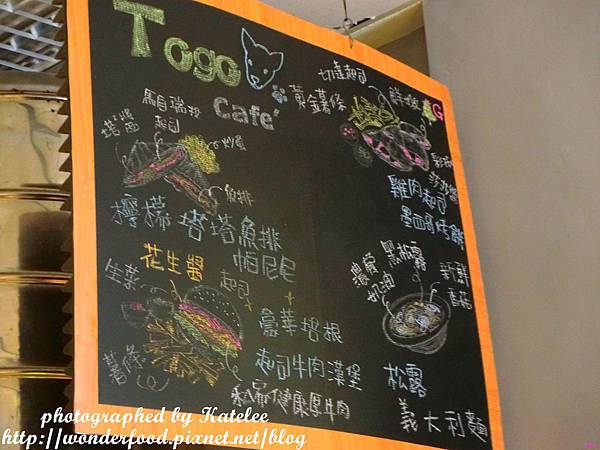 Togo
Cafe'
馬自瑞拉
起司
塔醬
炒蛋
魚排
檸檬塔塔魚排
帕尼尼
黃金薯條
切達起司
鮮嫩
莎莎醬
雞肉起司
墨西哥烤餅
花生醬
生菜
起司
薯條
豪華培根
起司牛肉漢堡
健康厚牛肉
濃醇
奶油
黑松露
新鮮
蘑菇
松露
義大利麵
photographed by Katelee
http://wonderfood.pixnet.net/blog